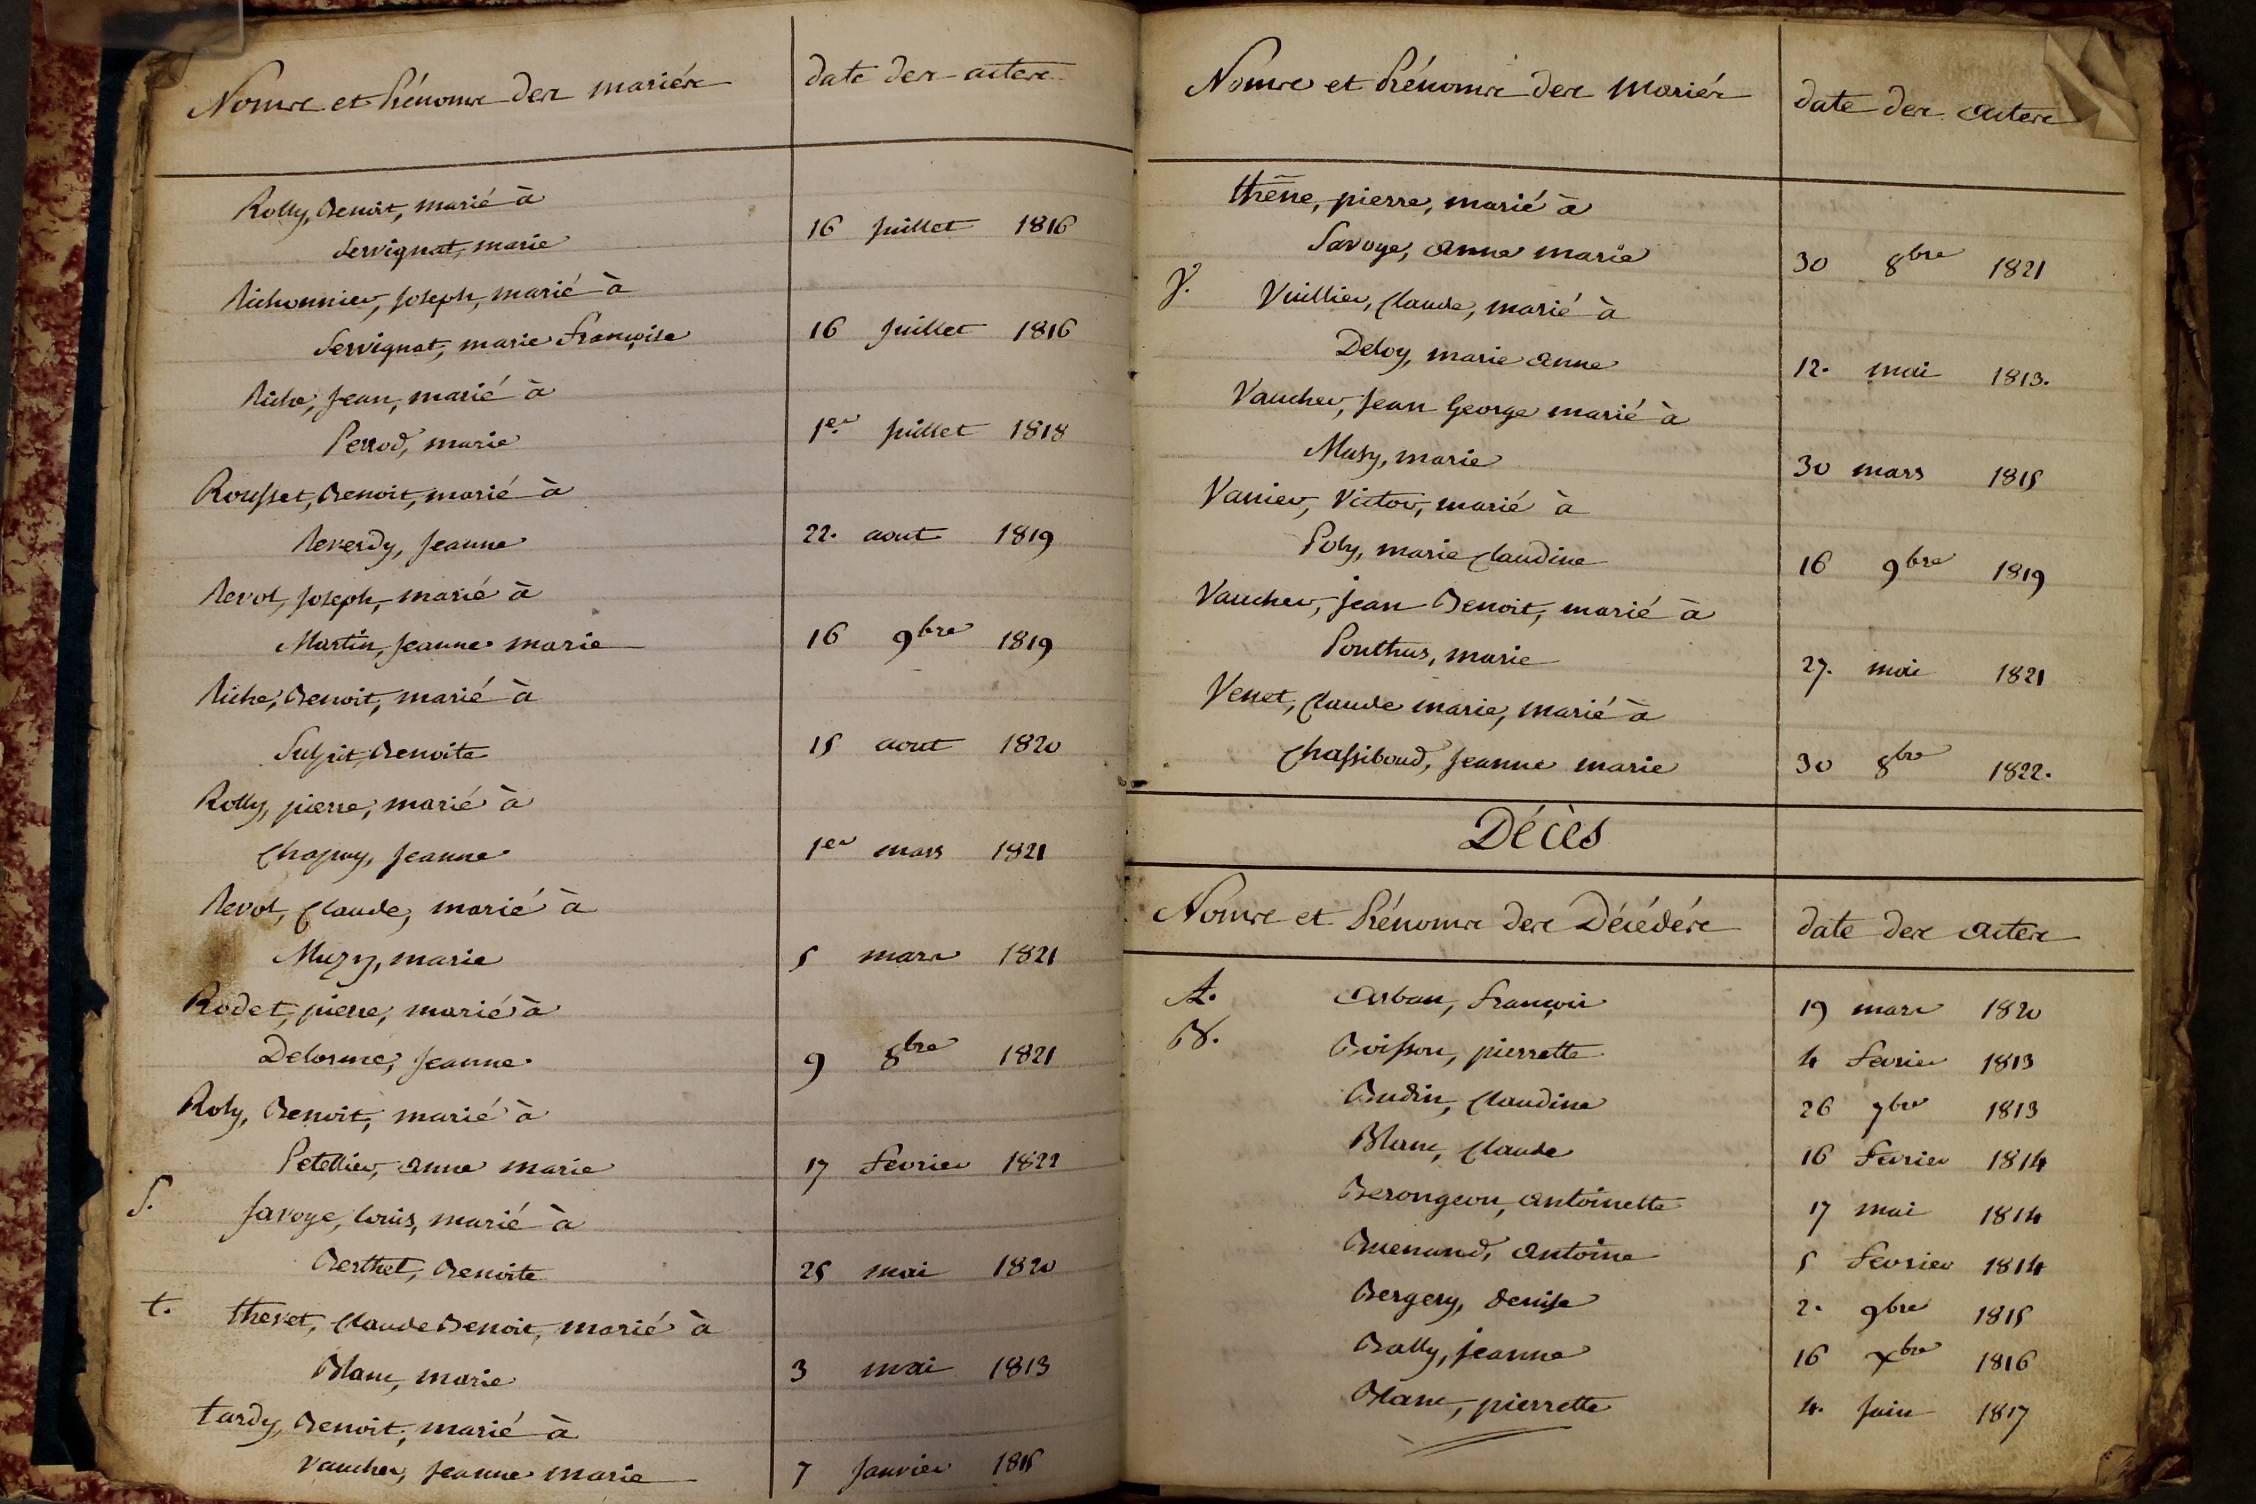 Noms et Prénoms des mariés date des actes
Rolly, Benoit, marié à
Servignat, marie 16 Juillet 1816
Richonnier, Joseph, marié à
Servignat, marie Françoise 16 Juillet 1816
Riche, Jean, marié à
Perrod, marie 1er Juillet 1818
Rousset, Benoit, marié à
Reverdy, Jeanne 22. aout 1819
Revol, Joseph, marié à
Martin, Jeanne marie 16 9bre 1819
Riche, Benoit, marié à
Sulpit, Benoite 15 aout 1820
Rolly, pierre, marié à
Chapuy, Jeanne 1er mars 1821
Revol, Claude, marié à
Muzy, marie 5 mars 1821
Rodet, pierre, marié à
Delorme, Jeanne 9 8bre 1821
Roly, Benoit, marié à
Petellier, anne marie 17 Fevrier 1822
S. Savoye, louis, marié à
Berthet, Benoite 25 mai 1820
t. thevet, Claude Benoit, marié à
Blanc, marie 3 mai 1813
tardy, Benoit, marié à
Vaucher, Jeanne marie 7 Janvier 1815
Noms et Prénoms des Mariés date des actes
thêne, pierre, marié à
Savoye, anne marie 30 8bre 1821
V. Vuillier, Claude, marié à
Deloy, marie anne 12. mai 1813.
Vaucher, Jean George marié à
Musy, marie 30 mars 1815
Vanier, Victor, marié à
Poly, marie Claudine 16 9bre 1819
Vaucher, jean Benoit, marié à
Ponthus, marie 27. mai 1821
Venet, Claude marie, marié à
Chassiboud, Jeanne marie 30 8bre 1822.
Décès
Noms et Prénoms des Décédés date des actes
A. Arban, François 19 mars 1820
B. Boisson, pierrette 4 Fevrier 1813
Budin, Claudine 26 7bre 1813
Blanc, Claude 16 Fevrier 1814
Berongeon, antoinette 17 mai 1814
Buenand, antoine 5 Fevrier 1814
Bergery, denise 2. 9bre 1815
Bally, jeanne 16 Xbre 1816
Blanc, pierrette 4. Juin 1817